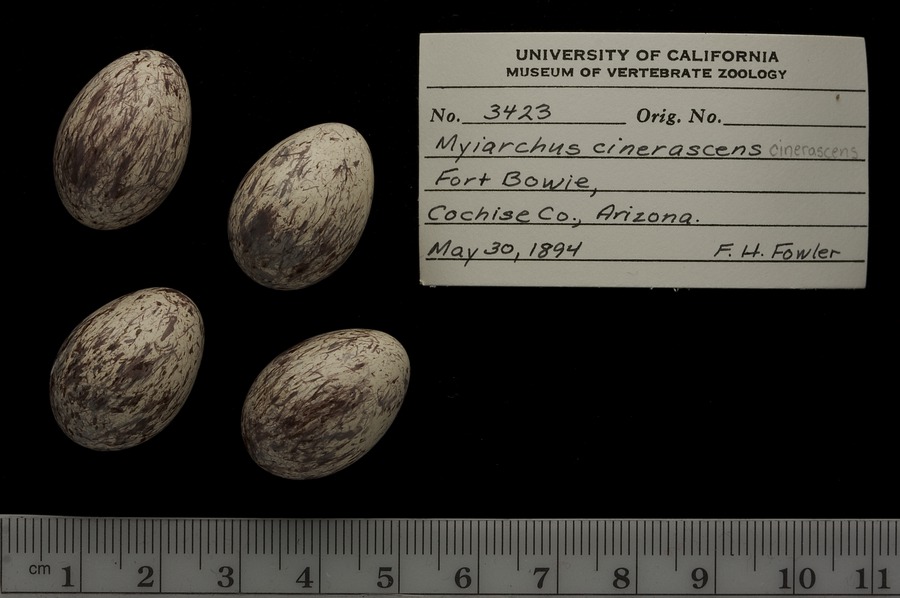 UNIVERSITY OF CALIFORNIA
MUSEUM OF VERTEBRATE ZOOLOGY
No. 3423 Orig. No.
Myiarchus cinerascens cinerascens
Fort Bowie,
Cochise Co., Arizona.
May 30, 1894 F. H. Fowler
cm 1 2 3 4 5 6 7 8 9 10 11